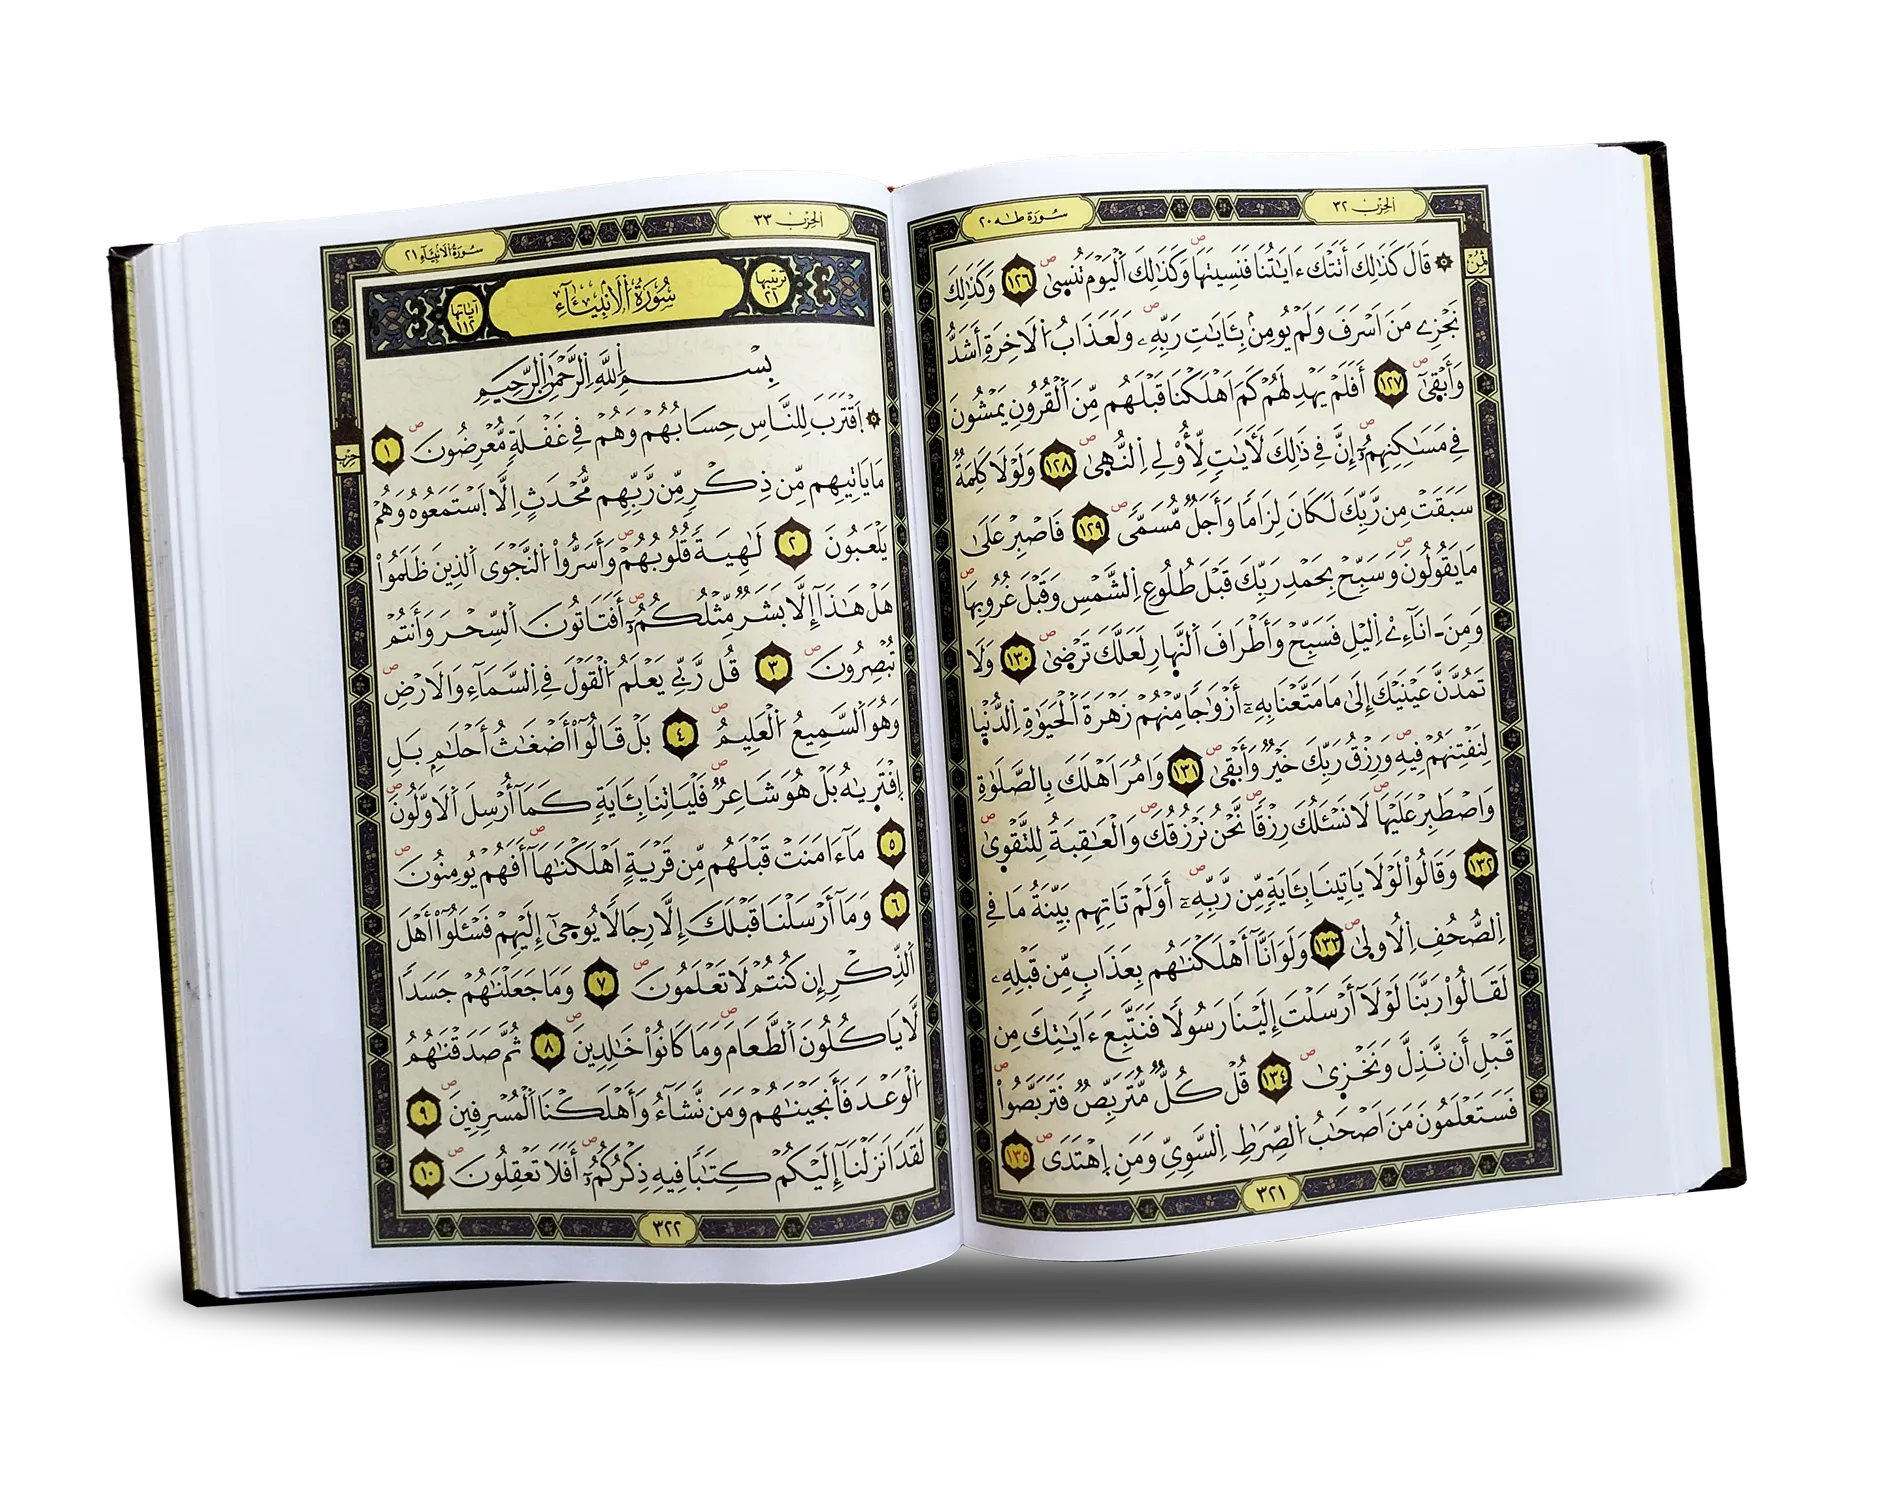 سُورَة طَهَ ٢٠
الحِزْب ٣٢
ثُمُن
۞ قَالَ كَذَٰلِكَ أَتَتْكَ ءَايَٰتُنَا فَنَسِيتَهَا ص وَكَذَٰلِكَ اَ۬لْيَوْمَ تُنس۪يٰ ص ١٢٦ وَكَذَٰلِكَ
نَجْزِے مَنَ اَسْرَفَ وَلَمْ يُومِنۢ بِـَٔايَٰتِ رَبِّهِۦ ص وَلَعَذَابُ اُ۬لَاخِرَةِ أَشَدُّ
وَأَبْق۪يٰٓ ص ١٢٧ أَفَلَمْ يَهْدِ لَهُمْ كَمَ اَهْلَكْنَا قَبْلَهُم مِّنَ اَ۬لْقُرُونِ يَمْشُونَ
فِے مَسَٰكِنِهِمُۥٓ ص إِنَّ فِے ذَٰلِكَ لَأٓيَٰتٖ لِّأُوْلِے اِ۬لنُّه۪يٰ ص ١٢٨ وَلَوْلَا كَلِمَةٞ
سَبَقَتْ مِن رَّبِّكَ لَكَانَ لِزَاماٗ وَأَجَلٞ مُّسَمّيٗ ص ١٢٩ فَاصْبِرْ عَلَىٰ
مَا يَقُولُونَ ص وَسَبِّحْ بِحَمْدِ رَبِّكَ قَبْلَ طُلُوعِ اِ۬لشَّمْسِ وَقَبْلَ غُرُوبِهَا ص
وَمِنَ ـ اٰنَآءِےْ اِ۬ليْلِ فَسَبِّحْ وَأَطْرَافَ اَ۬لنَّهارِ لَعَلَّكَ تَرْض۪يٰ ص ١٣٠ وَلَا
تَمُدَّنَّ عَيْنَيْكَ إِلَىٰ مَا مَتَّعْنَا بِهِۦٓ أَزْوَٰجاٗ مِّنْهُمْ زَهْرَةَ اَ۬لْحَيَوٰةِ اِ۬لدُّنْي۪ا
لِنَفْتِنَهُمْ فِيهِ ص وَرِزْقُ رَبِّكَ خَيْرٞ وَأَبْق۪يٰ ص ١٣١ وَامُرَ اَهْلَكَ بِالصَّلَوٰةِ
وَاصْطَبِرْ عَلَيْهَا ص لَا نَسْـَٔلُكَ رِزْقاٗ ص نَّحْنُ نَرْزُقُكَ ص وَالْعَٰقِبَةُ لِلتَّقْو۪يٰ ص
١٣٢ وَقَالُواْ لَوْلَا يَاتِينَا بِـَٔايَةٖ مِّن رَّبِّهِۦٓ ص أَوَلَمْ تَاتِهِم بَيِّنَةُ مَا فِے
اِ۬لصُّحُفِ اِ۬لُاول۪يٰ ص ١٣٣ وَلَوَ اَنَّآ أَهْلَكْنَٰهُم بِعَذَابٖ مِّن قَبْلِهِۦ
لَقَالُواْ رَبَّنَا لَوْلَآ أَرْسَلْتَ إِلَيْنَا رَسُولاٗ فَنَتَّبِعَ ءَايَٰتِكَ مِن
قَبْلِ أَن نَّذِلَّ وَنَخْز۪يٰ ص ١٣٤ قُلْ كُلّٞ مُّتَرَبِّصٞ فَتَرَبَّصُواْ ص
فَسَتَعْلَمُونَ مَنَ اَصْحَٰبُ اُ۬لصِّرَٰطِ اِ۬لسَّوِيِّ وَمَنِ اِ۪هْتَد۪ىٰ ص ١٣٥
٣٢١
الحِزْب ٣٣
سُورَةُ الَانۢبِيَآءِ ٢١
ترتيبها ٢١
سُورَةُ اُ۬لَانۢبِيَآءِ
آياتها ١١٢
بِسْمِ اِ۬للَّهِ اِ۬لرَّحْمَٰنِ اِ۬لرَّحِيمِ
حِزْب
۞ اِ۪قْتَرَبَ لِلنَّاسِ حِسَابُهُمْ وَهُمْ فِے غَفْلَةٖ مُّعْرِضُونَ ص ١
مَا يَاتِيهِم مِّن ذِكْرٖ مِّن رَّبِّهِم مُّحْدَثٍ اِلَّا اَ۪سْتَمَعُوهُ وَهُمْ
يَلْعَبُونَ ٢ لَٰهِيَةٗ قُلُوبُهُمْ ص وَأَسَرُّواْ اُ۬لنَّجْوَي اَ۬لذِينَ ظَلَمُواْ
هَلْ هَٰذَآ إِلَّا بَشَرٞ مِّثْلُكُمُۥٓ ص أَفَتَاتُونَ اَ۬لسِّحْرَ وَأَنتُمْ
تُبْصِرُونَ ص ٣ قُل رَّبِّے يَعْلَمُ اُ۬لْقَوْلَ فِے اِ۬لسَّمَآءِ وَالَارْضِ ص
وَهُوَ اَ۬لسَّمِيعُ اُ۬لْعَلِيمُ ص ٤ بَلْ قَالُوٓاْ أَضْغَٰثُ أَحْلَٰمِۢ بَلِ
اِ۪فْتَر۪يٰهُ بَلْ هُوَ شَاعِرٞ ص فَلْيَاتِنَا بِـَٔايَةٖ كَمَآ أُرْسِلَ اَ۬لَاوَّلُونَ ص
٥ مَآ ءَامَنَتْ قَبْلَهُم مِّن قَرْيَةٍ اَهْلَكْنَٰهَآ ص أَفَهُمْ يُومِنُونَ ص
٦ وَمَآ أَرْسَلْنَا قَبْلَكَ إِلَّا رِجَالاٗ يُوح۪ىٰٓ إِلَيْهِمْ فَسْـَٔلُوٓاْ أَهْلَ
اَ۬لذِّكْرِ إِن كُنتُمْ لَا تَعْلَمُونَ ص ٧ وَمَا جَعَلْنَٰهُمْ جَسَداٗ
لَّا يَاكُلُونَ اَ۬لطَّعَامَ ص وَمَا كَانُواْ خَٰلِدِينَ ص ٨ ثُمَّ صَدَقْنَٰهُمُ
اُ۬لْوَعْدَ فَأَنجَيْنَٰهُمْ وَمَن نَّشَآءُ وَأَهْلَكْنَا اَ۬لْمُسْرِفِينَ ص ٩
لَقَدَ اَنزَلْنَآ إِلَيْكُمْ كِتَٰباٗ فِيهِ ذِكْرُكُمُۥٓ ص أَفَلَا تَعْقِلُونَ ص ١٠
٣٢٢